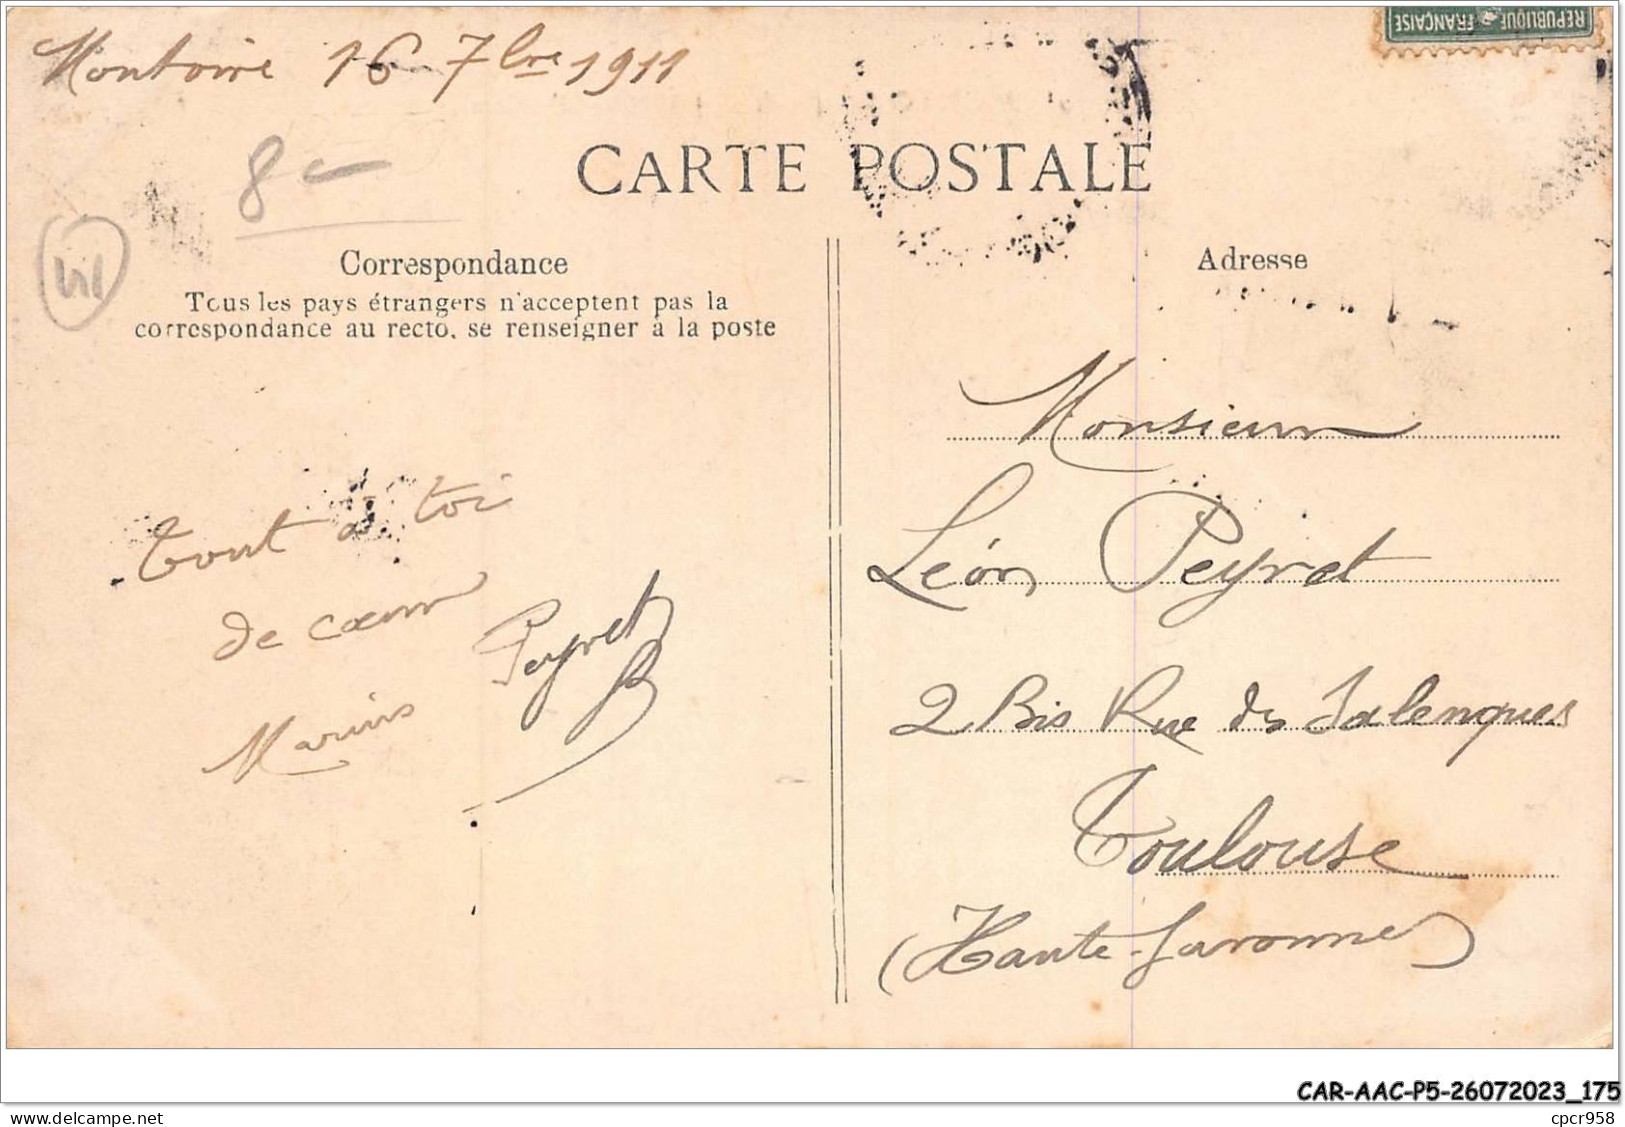 REPUBLIQUE FRANÇAISE
Montoire 16 7bre 1911
8
CARTE POSTALE
41
Correspondance
Tous les pays étrangers n'acceptent pas la
correspondance au recto, se renseigner à la poste
Adresse
Monsieur
Léon Peyret
2 Bis Rue des Salenques
Toulouse
(Haute-Garonne)
Tout à toi
de cœur
Marius Peyret
CAR-AAC-P5-26072023_175
www.delcampe.net
cpcr958